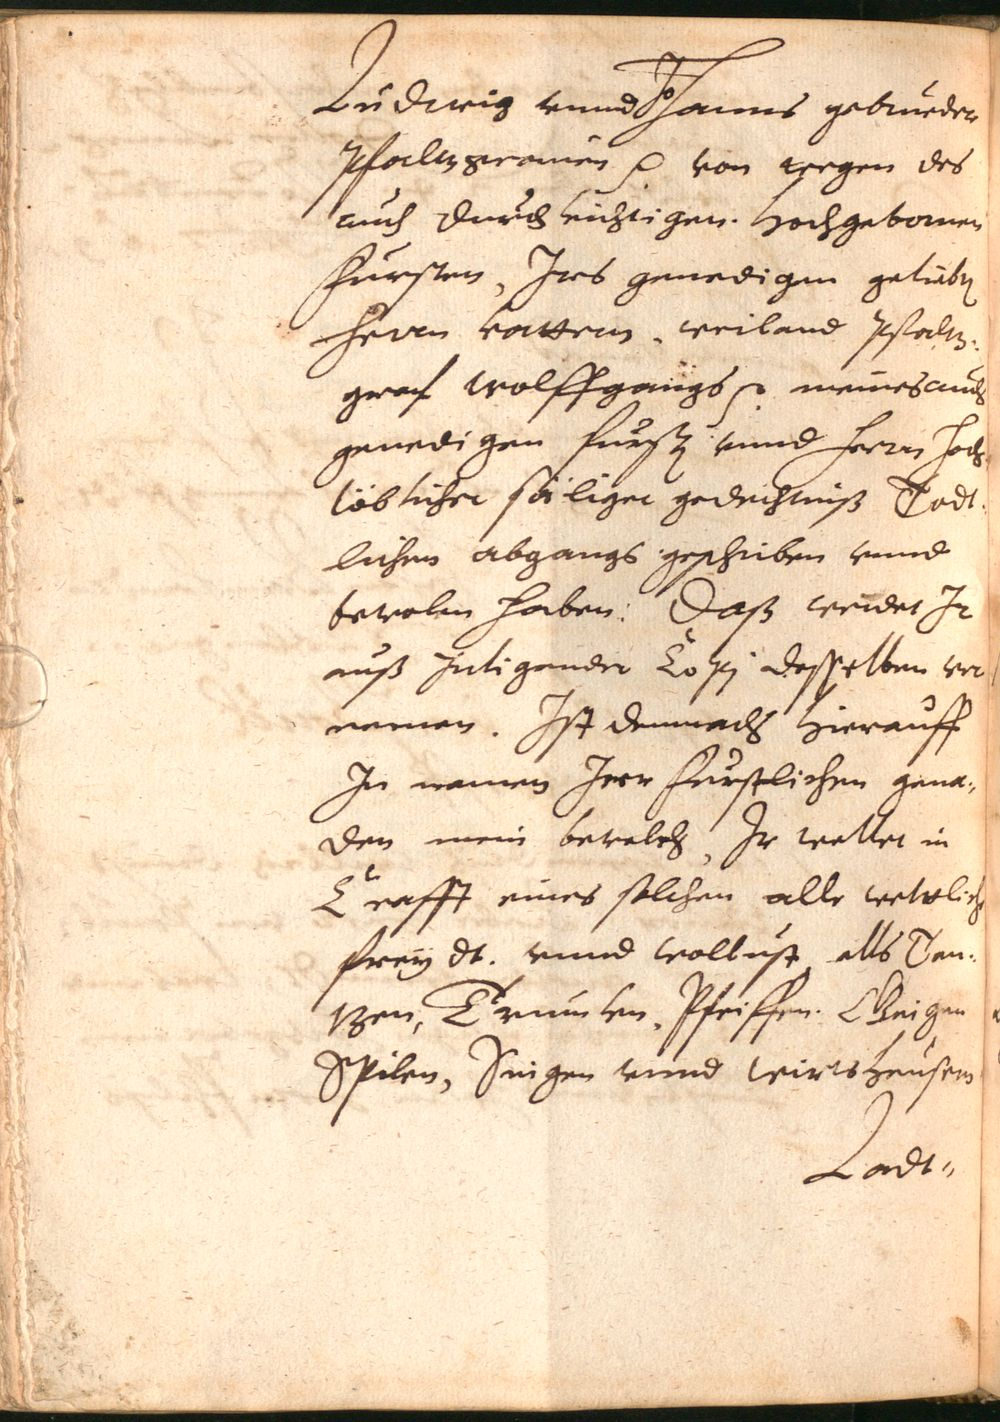 Ludwig vnnd Johanns gebrueder
Pfaltzgrauen ꝛc von wegen des
auch durchleichtigen. Hochgebornen
Fursten, Irs genedigen geliebtñ
Herrn Vatters. weiland Pfaltz-
graf Wolffganngs ꝛc. meines auch
genedigen Furstñ vnnd Herrn Hoch-
löblicher säliger gedechtnuß Todt-
lichen abgangs geschriben vnnd
bevolen haben: Daß werdet Ir
auß Inligender Copj desselben ver
nemen. Ist demnach hierauff
In namen Irer Furstlichen gena-
den mein bevelch, Ir wellet in
Crafft eines solchen alle weltliche
freydt. vnnd wollust, alls Tan-
tzen, Trumlen, Pfeiffen. Geigen
Spilen, Singen vnnd wirtsheusern
Ladt-